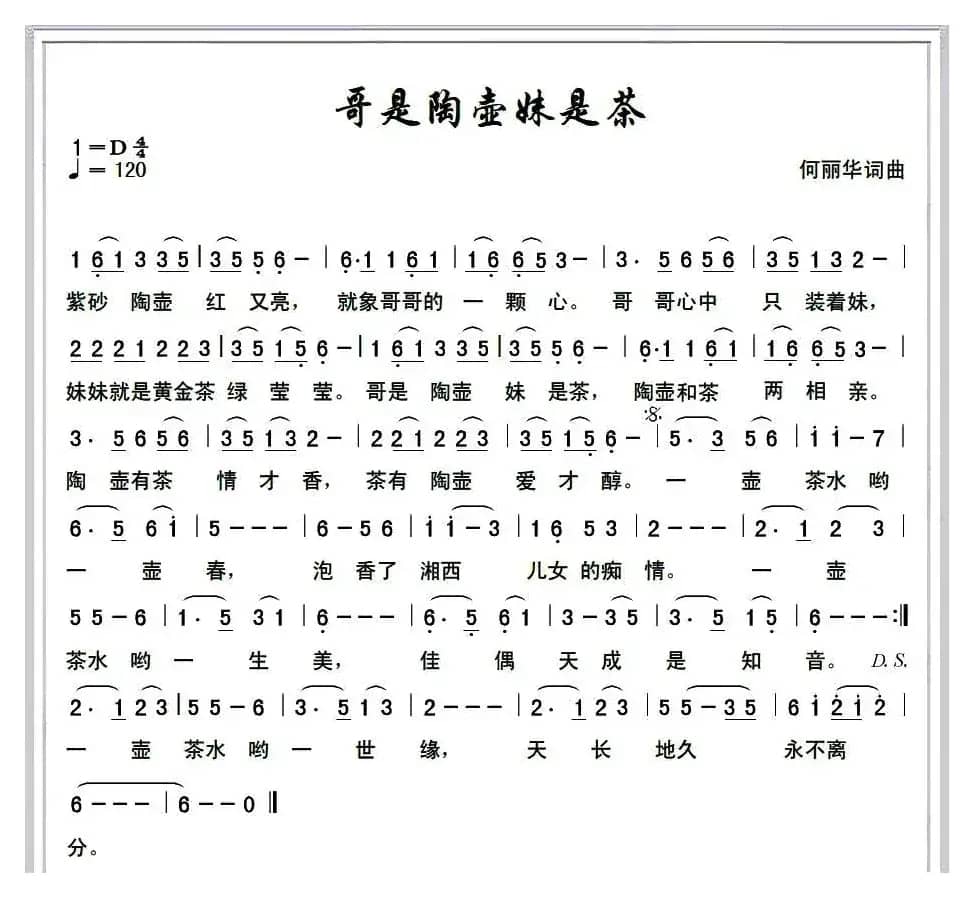 哥是陶壶妹是茶
1=D 4/4
♩= 120
何丽华词曲
1 6 1 3 3 5 | 3 5 5 6 – | 6· 1 1 6 1 | 1 6 6 5 3 – | 3· 5 6 5 6 | 3 5 1 3 2 – |
紫砂 陶壶 红 又亮, 就象哥哥的 一 颗 心。 哥 哥心中 只 装着妹,
2 2 2 1 2 2 3 | 3 5 1 5 6 – | 1 6 1 3 3 5 | 3 5 5 6 – | 6· 1 1 6 1 | 1 6 6 5 3 – |
妹妹就是黄金茶 绿 莹 莹。 哥是 陶壶 妹 是茶, 陶壶和茶 两 相 亲。
3· 5 6 5 6 | 3 5 1 3 2 – | 2 2 1 2 2 3 | 3 5 1 5 6 – | 5· 3 5 6 | 1 1 – 7 |
陶 壶有茶 情 才 香, 茶有 陶壶 爱 才 醇。 一 壶 茶水 哟
6· 5 6 1 | 5 – – – | 6 – 5 6 | 1 1 – 3 | 1 6 5 3 | 2 – – – | 2· 1 2 3 |
一 壶 春, 泡 香了 湘西 儿女 的痴 情。 一 壶
5 5 – 6 | 1· 5 3 1 | 6 – – – | 6· 5 6 1 | 3 – 3 5 | 3· 5 1 5 | 6 – – – :‖
茶水 哟 一 生 美, 佳 偶 天 成 是 知 音。 D. S.
2· 1 2 3 | 5 5 – 6 | 3· 5 1 3 | 2 – – – | 2· 1 2 3 | 5 5 – 3 5 | 6 1 2 1 2 |
一 壶 茶水 哟 一 世 缘, 天 长 地久 永不离
6 – – – | 6 – – 0 ‖
分。